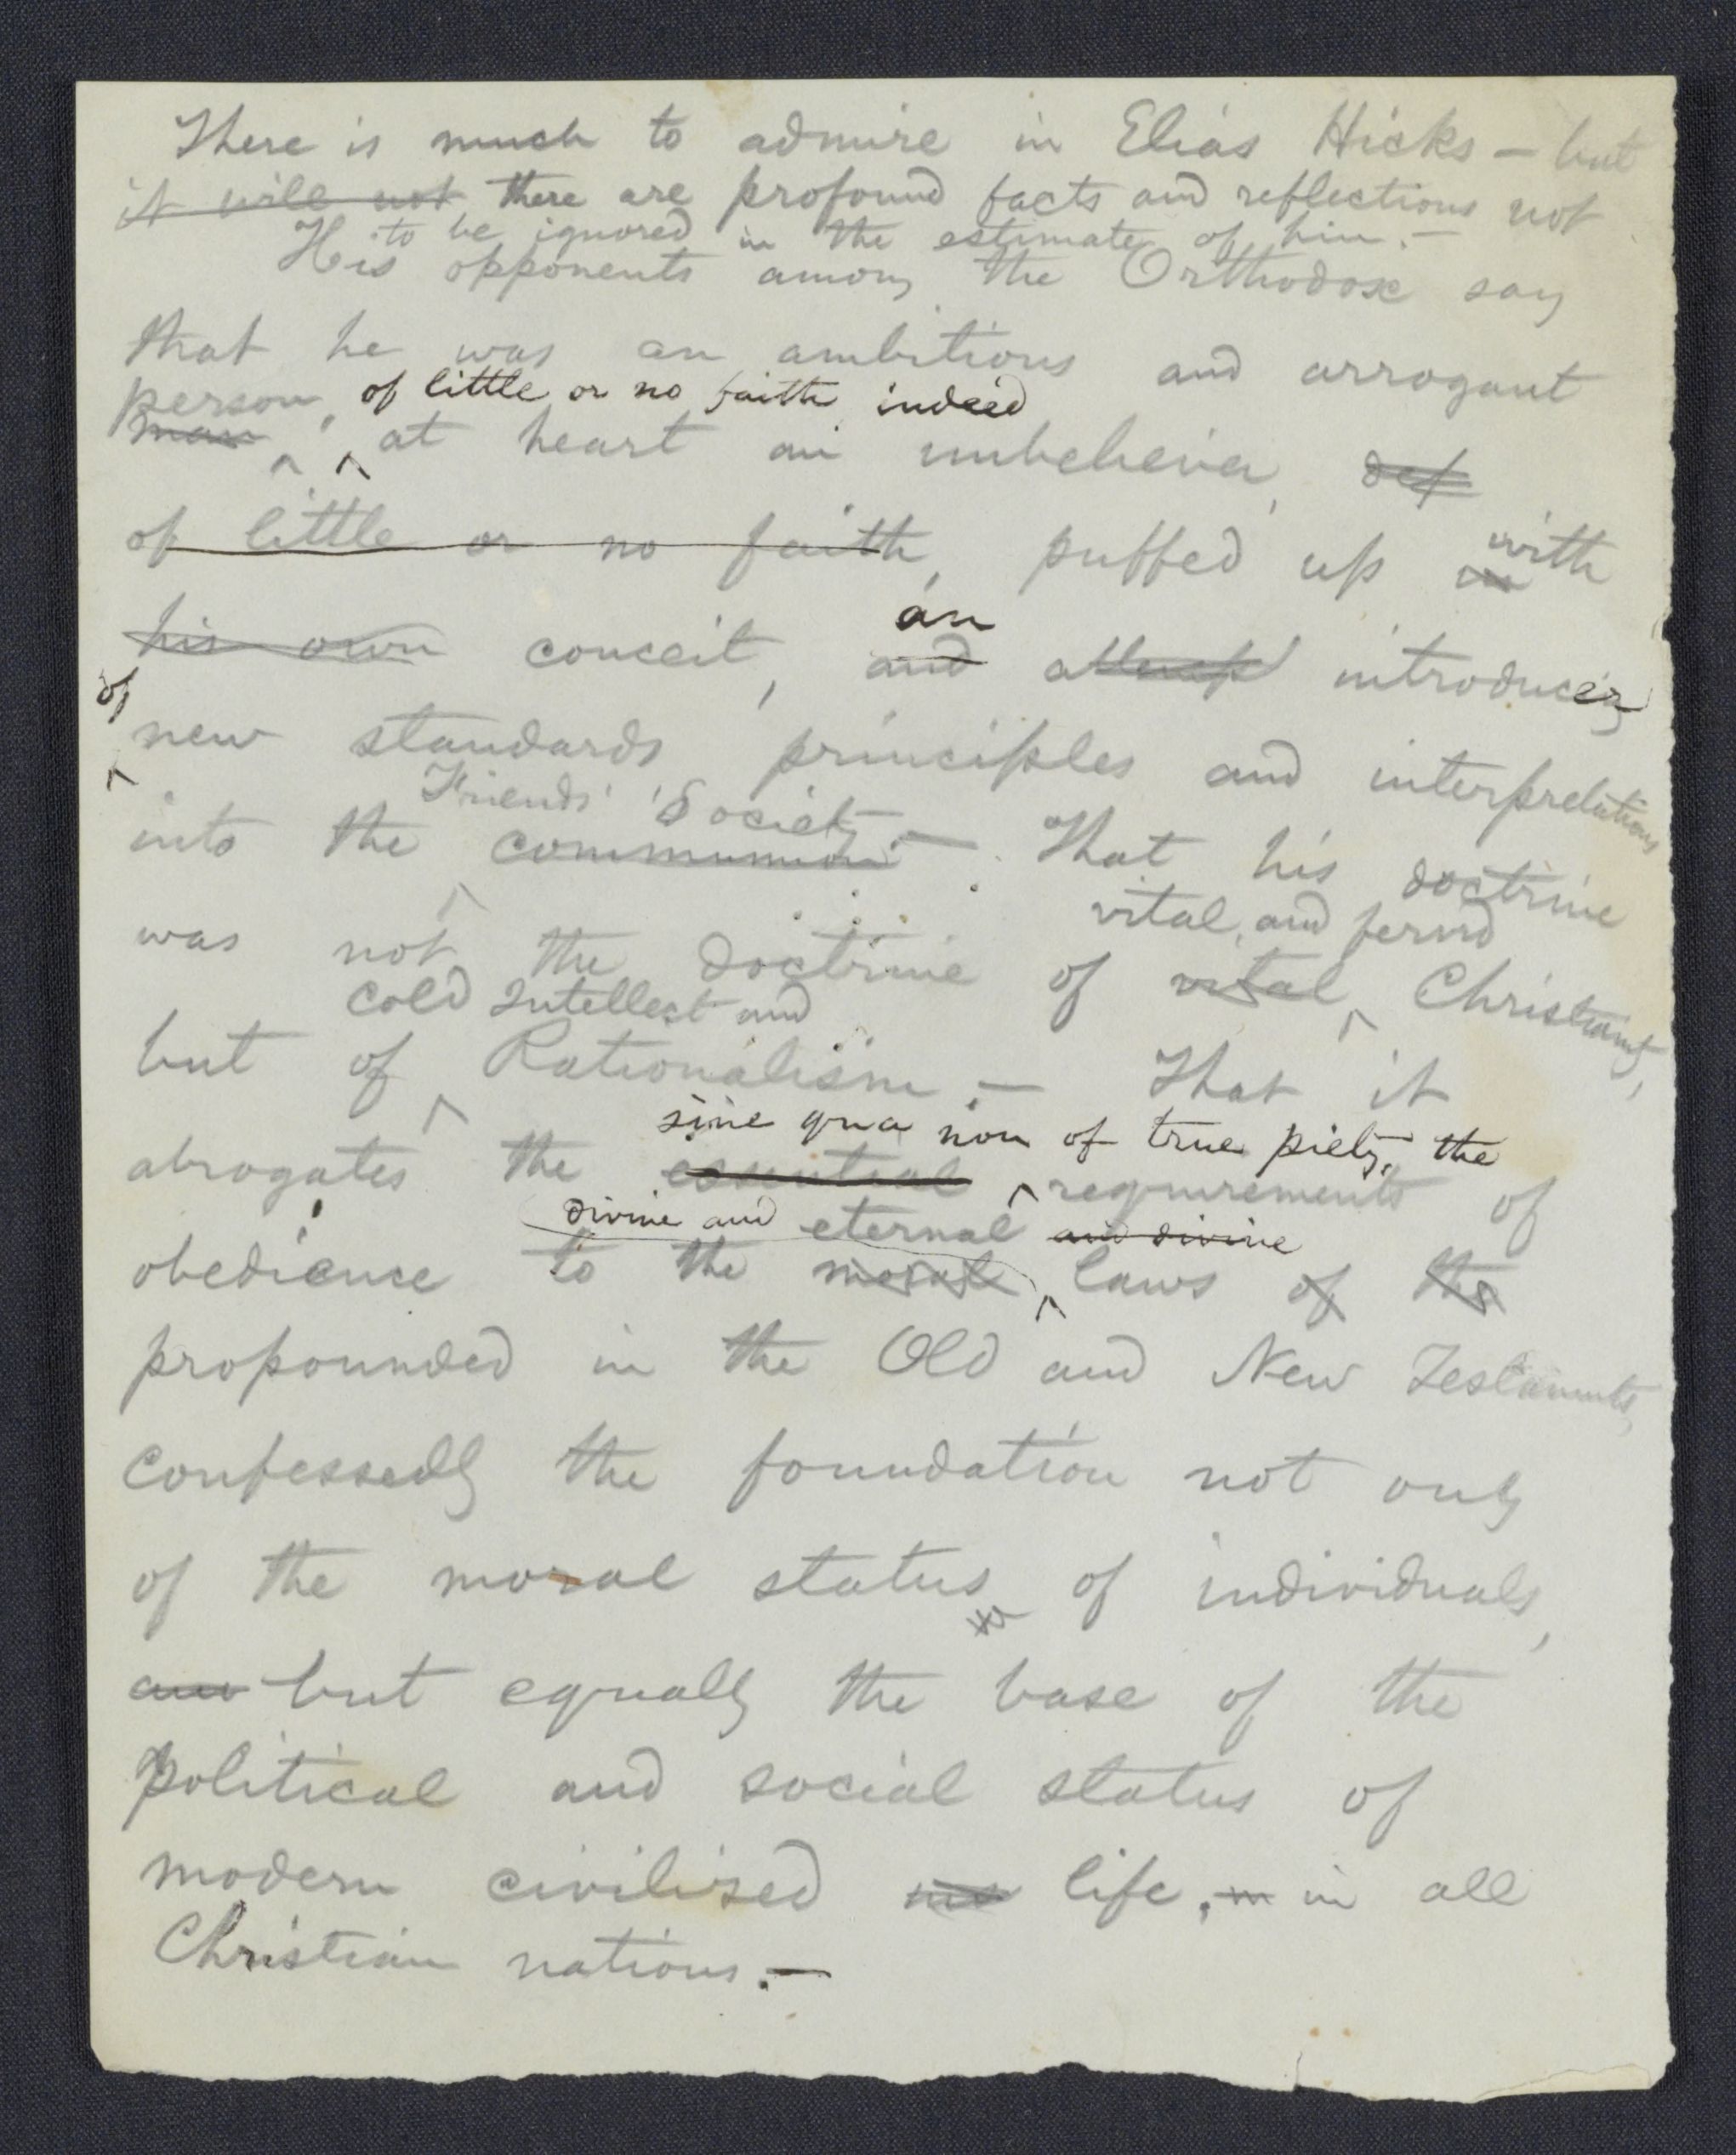 There is much to admire in Elias Hicks — but
it will not there are profound facts and reflections not
to be ignored in the estimate of him. —
His opponents among the Orthodox say
that he was an ambitious and arrogant
person, of little or no faith indeed
man at heart an unbeliever, def
of little or no faith, puffed up in with
his own conceit, and an attempt introducer
of new standards principles and interpretations
Friends' Society
into the communion — . That his doctrine
vital, and fervid
was not the doctrine of vital Christianity,
cold Intellect and
but of Rationalism. — That it
sine qua non of true piety, the
abrogates the essential requirements of
divine and eternal and divine
obedience to the moral laws of the
propounded in the Old and New Testaments,
confessedly the foundation not only
of the moral status of individuals,
but equally the base of the
political and social status of
modern civilized life, in in all
Christian nations. —